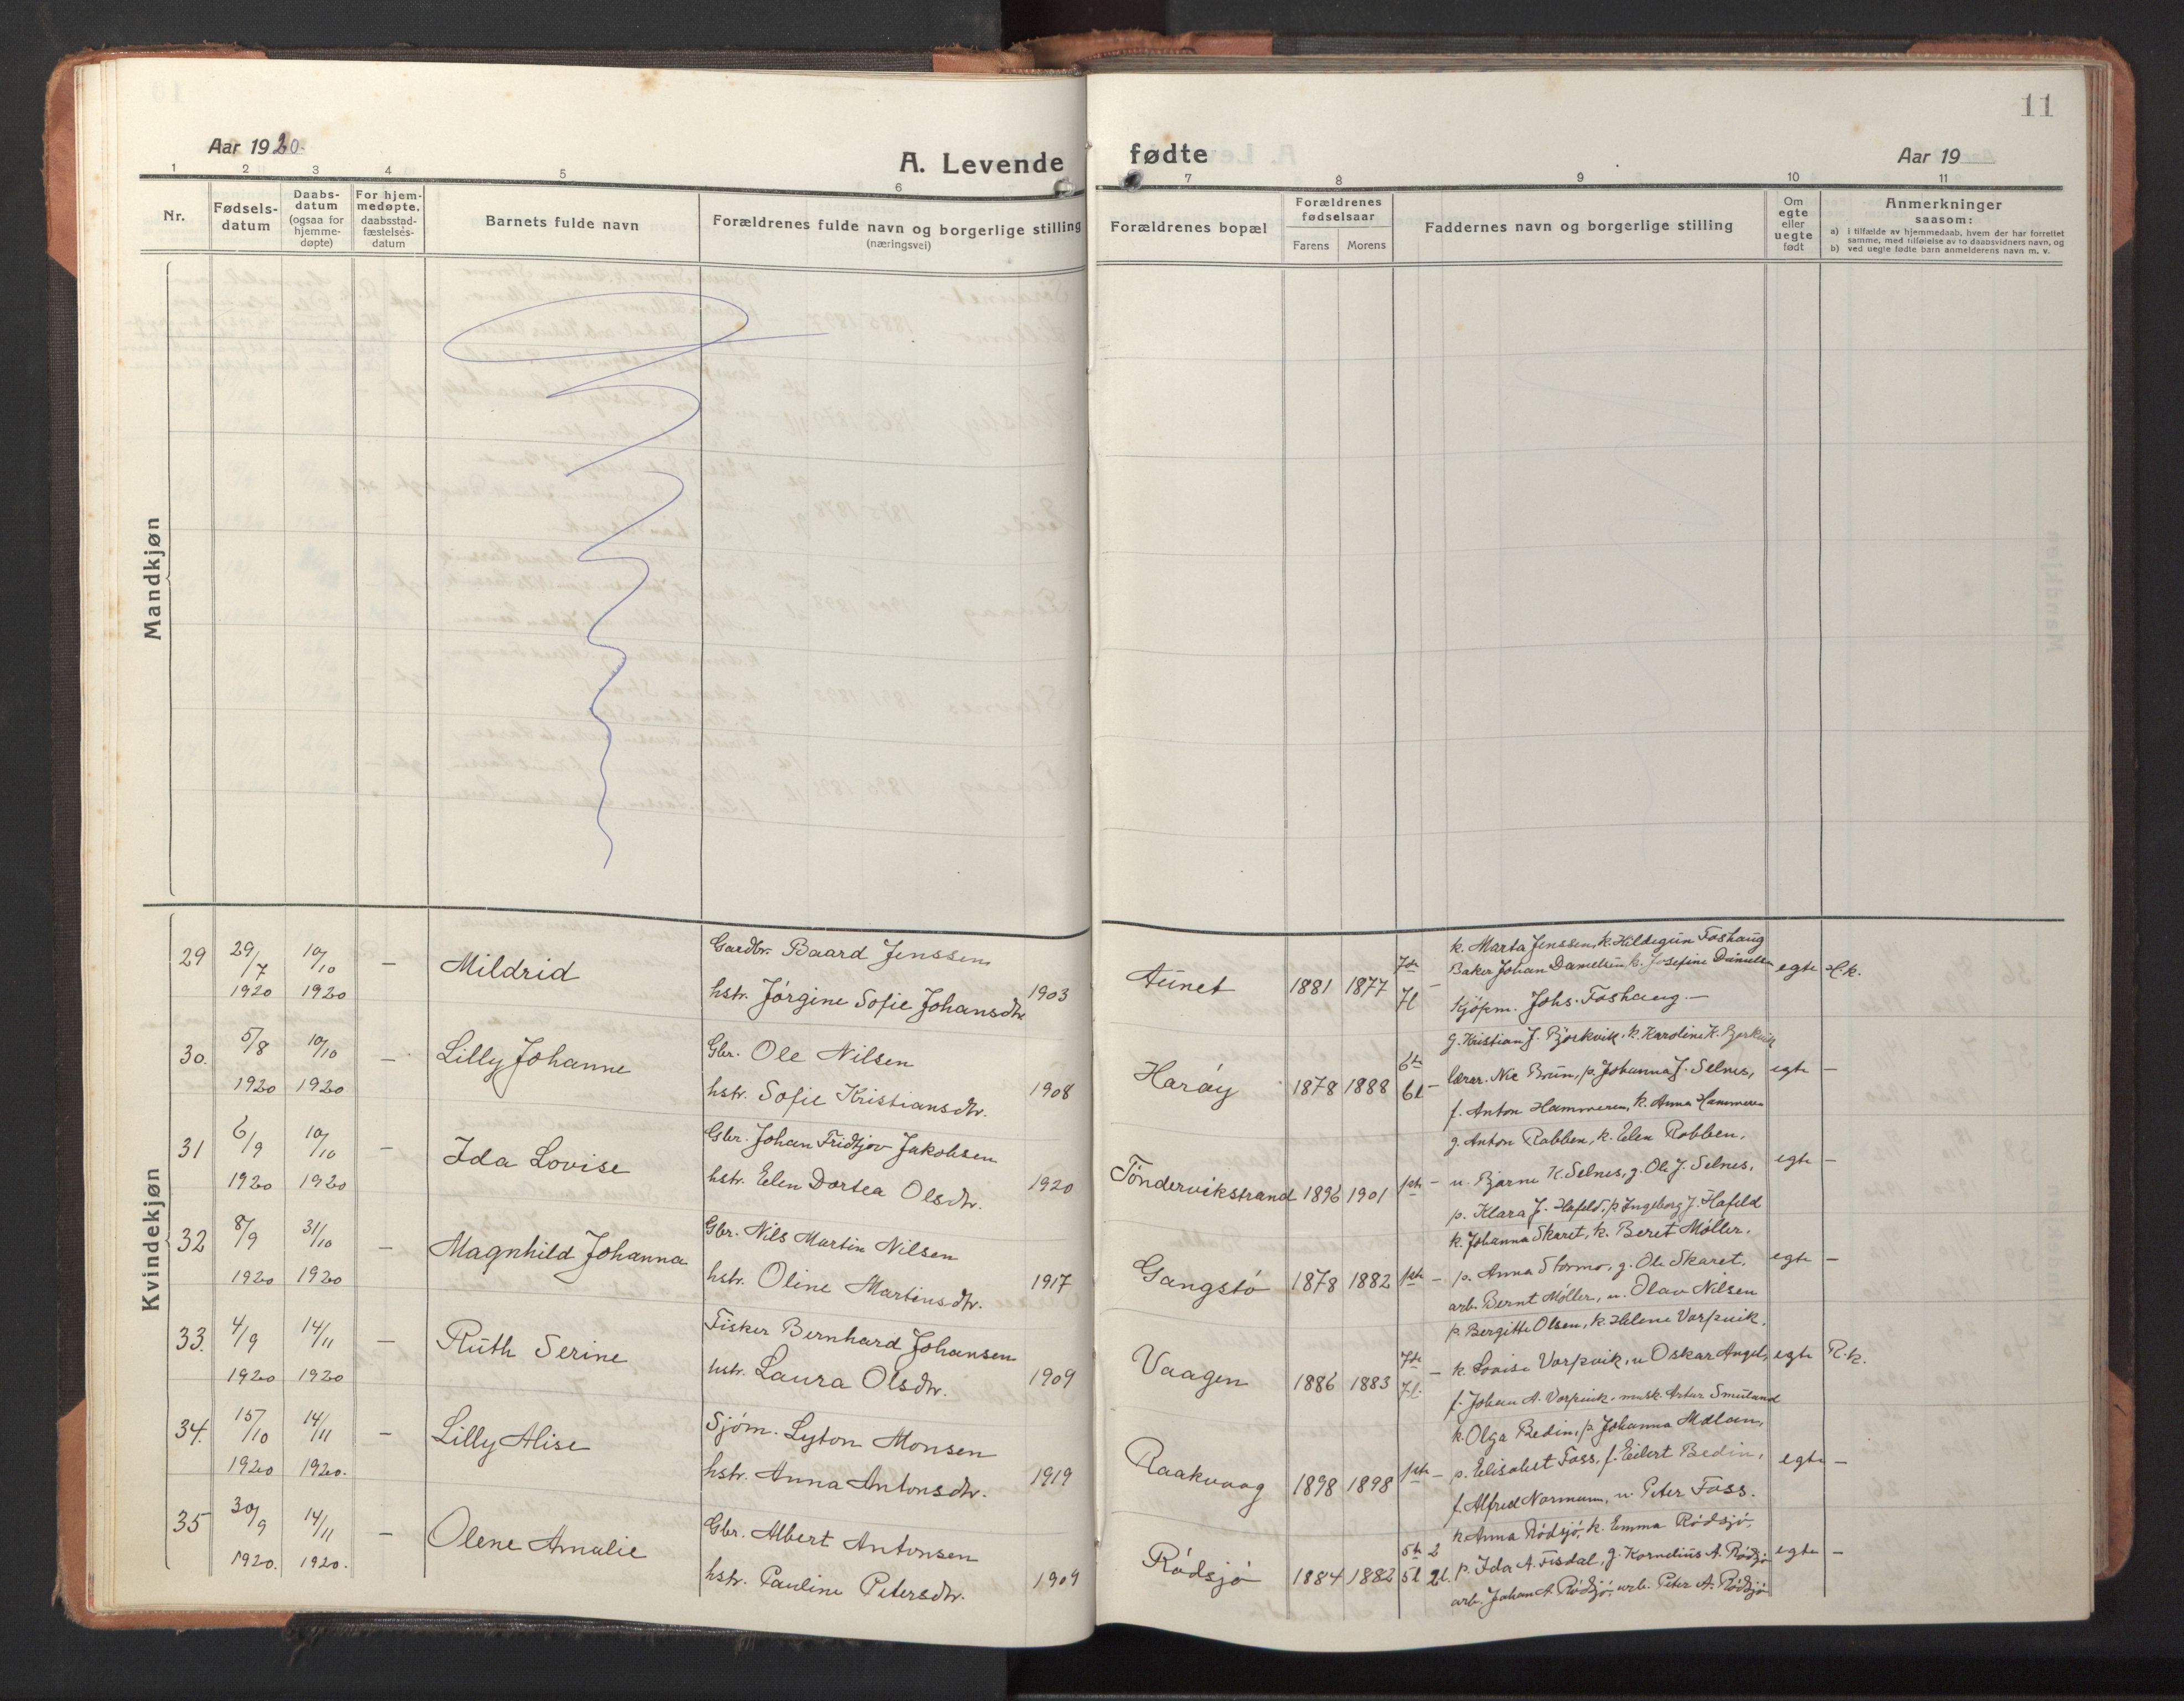 11
Aar 1920.
A. Levende
fødte
Aar 19
1 2 3 4 5 6 7 8 9 10 11
Nr.
Fødsels-
datum
Daabs-
datum
(ogsaa for
hjemme-
døpte)
For hjem-
medøpte.
daabsstad-
fæstelses-
datum
Barnets fulde navn
Forældrenes fulde navn og borgerlige stilling
(næringsvei)
Forældrenes bopæl
Forældrenes
fødselsaar
Farens Morens
Faddernes navn og borgerlige stilling
Om
egte
eller
uegte
født
Anmerkninger
saasom:
a) i tilfælde av hjemmedaab, hvem der har forrettet
samme, med tilføielse av to daabsvidners navn, og
b) ved uegte fødte barn anmelderens navn m. v.
Mandkjøn
Kvindekjøn
29 29/7 1920 10/10 1920 — Mildrid
Gardbr. Baard Jenssen
hstr. Jørgine Sofie Johansdtr. 1903
Aunet 1881 1877 7de 7l —
k. Marta Jenssen, k. Hildegun Foshaug
Baker Johan Danielsen, k. Josefine Danielsen
Kjøpm. Johs. Foshaug. —
egte H.k.
30. 5/8 1920 10/10 1920 — Lilly Johanne
Gbr. Ole Nilsen
hstr. Sofie Kristiansdtr. 1908
Harøy 1878 1888 6te 6l —
g. Kristian J. Bjørkvik, k. Karoline K. Bjørkvik
lærer. Nic Brun, p. Johanna J. Selnes,
f. Anton Hammeren, k. Anna Hammeren
egte —
31 6/9 1920 10/10 1920 — Ida Lovise
Gbr. Johan Fridtjov Jakobsen
hstr. Elen Dortea Olsdtr. 1920
Tøndervikstrand 1896 1901 1ste —
g. Anton Rabben, k. Elen Robben.
u. Bjarne K. Selnes, g. Ole J. Selnes.
p. Klara J. Hafeld, p Ingeborg J. Hafeld
egte —
32 8/9 1920 31/10 1920 — Magnhild Johanna
Gbr. Nils Martin Nilsen
hstr. Oline Martinsdtr. 1917
Gangstø 1878 1882 1ste —
k. Johanna Skaret, k. Beret Møller.
p. Anna Stormo, g. Ole Skaret.
arb. Bernt Møller, u. Olav Nilsen
egte —
33. 4/9 1920 14/11 1920 — Ruth Serine
Fisker Bernhard Johansen
hstr. Laura Olsdtr. 1909
Vaagen 1886 1883 7de 7l. —
p. Bergitte Olsen, k. Helene Vorpvik.
k. Lovise Vorpvik, u Oskar Angel,
f. Johan A. Vorpvik, mask. Artur Smuland
egte R.k.
34. 15/10 1920 14/11 1920. — Lilly Alise
Sjøm. Lyton Monsen
hstr. Anna Antonsdtr. 1919
Raakvaag 1898 1898 1ste —
k. Olga Bedin, p. Johanna Mælan,
p. Elisabet Foss, f. Eilert Bedin,
f. Alfred Normann, u. Peter Foss.
egte —
35 30/9 1920. 14/11 1920. — Olene Amalie
Gbr. Albert Antonsen
hstr. Pauline Petersdtr. 1909
Rødsjø 1884 1882 5te 2 5l 2l.
k Anna Rødsjø, k. Emma Rødsjø,
p. Ida A. Fisdal, g. Kornelius A. Rødsjø
arb. Johan A. Rødsjø, arb. Peter A. Rødsjø
egte —